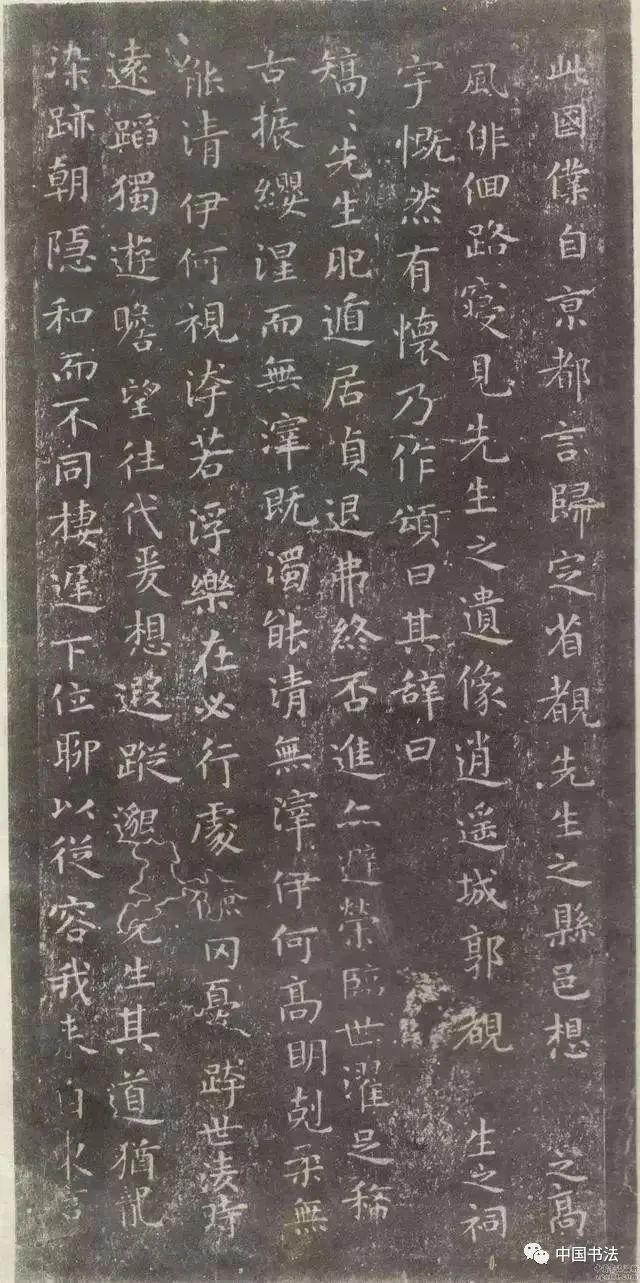 此國僕自京都言歸定省覩先生之縣邑想之高
風俳佪路寝見先生之遺像逍遥城郭覩生之祠
宇慨然有懷乃作頌曰其辭曰
矯〻先生肥遁居貞退弗終否進亦避榮臨世濯足稀
古振纓涅而無滓既濁能清無滓伊何高明剋柔無
能清伊何視洿若浮樂在必行處儉罔憂跨世凌時
遠蹈獨遊瞻望往代爰想遐蹤邈先生其道猶龍
染跡朝隱和而不同棲遲下位聊以從容我来自
中国书法